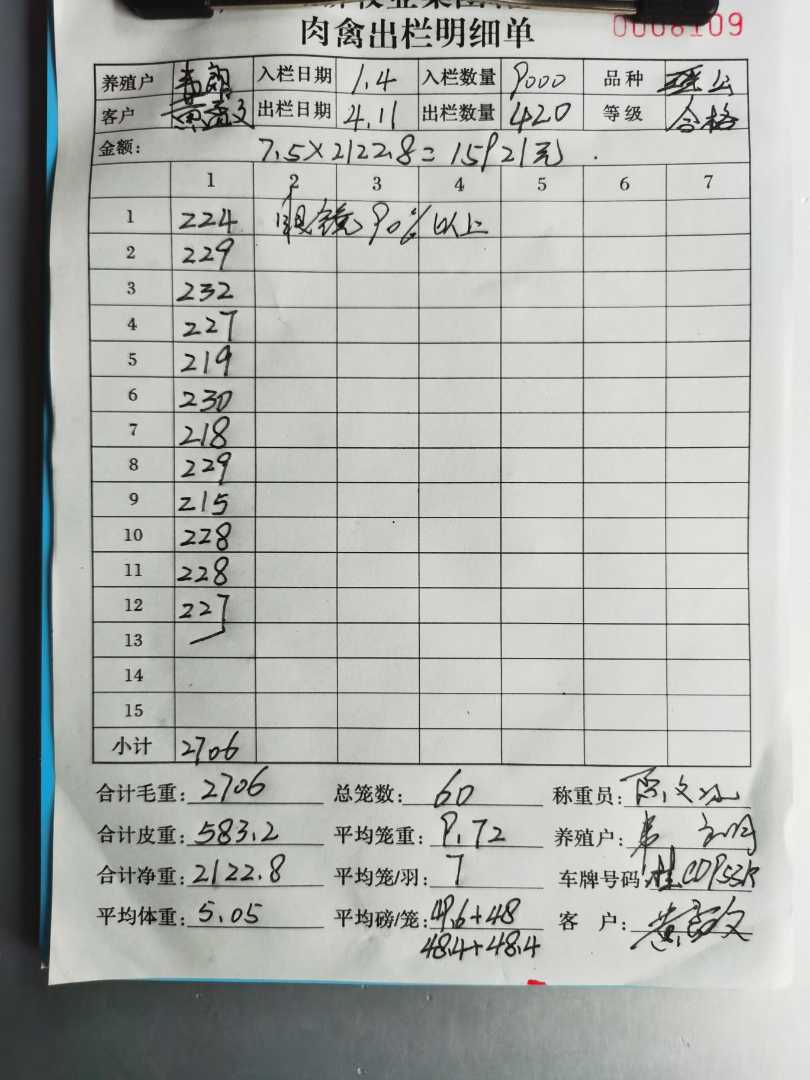 肉禽出栏明细单 0008109
养殖户 入栏日期 1.4 入栏数量 9000 品种
客户 出栏日期 4.11 出栏数量 420 等级 合格
金额: 7.5×2122.8=15921元.
1 2 3 4 5 6 7
1 224 眼镜90%以上
2 229
3 232
4 227
5 219
6 230
7 218
8 229
9 215
10 228
11 228
12 227
13
14
15
小计 2706
合计毛重: 2706 总笼数: 60 称重员:
合计皮重: 583.2 平均笼重: 9.72 养殖户:
合计净重: 2122.8 平均笼/羽: 7 车牌号码
平均体重: 5.05 平均磅/笼: 49.6+48 客 户:
48.4+48.4